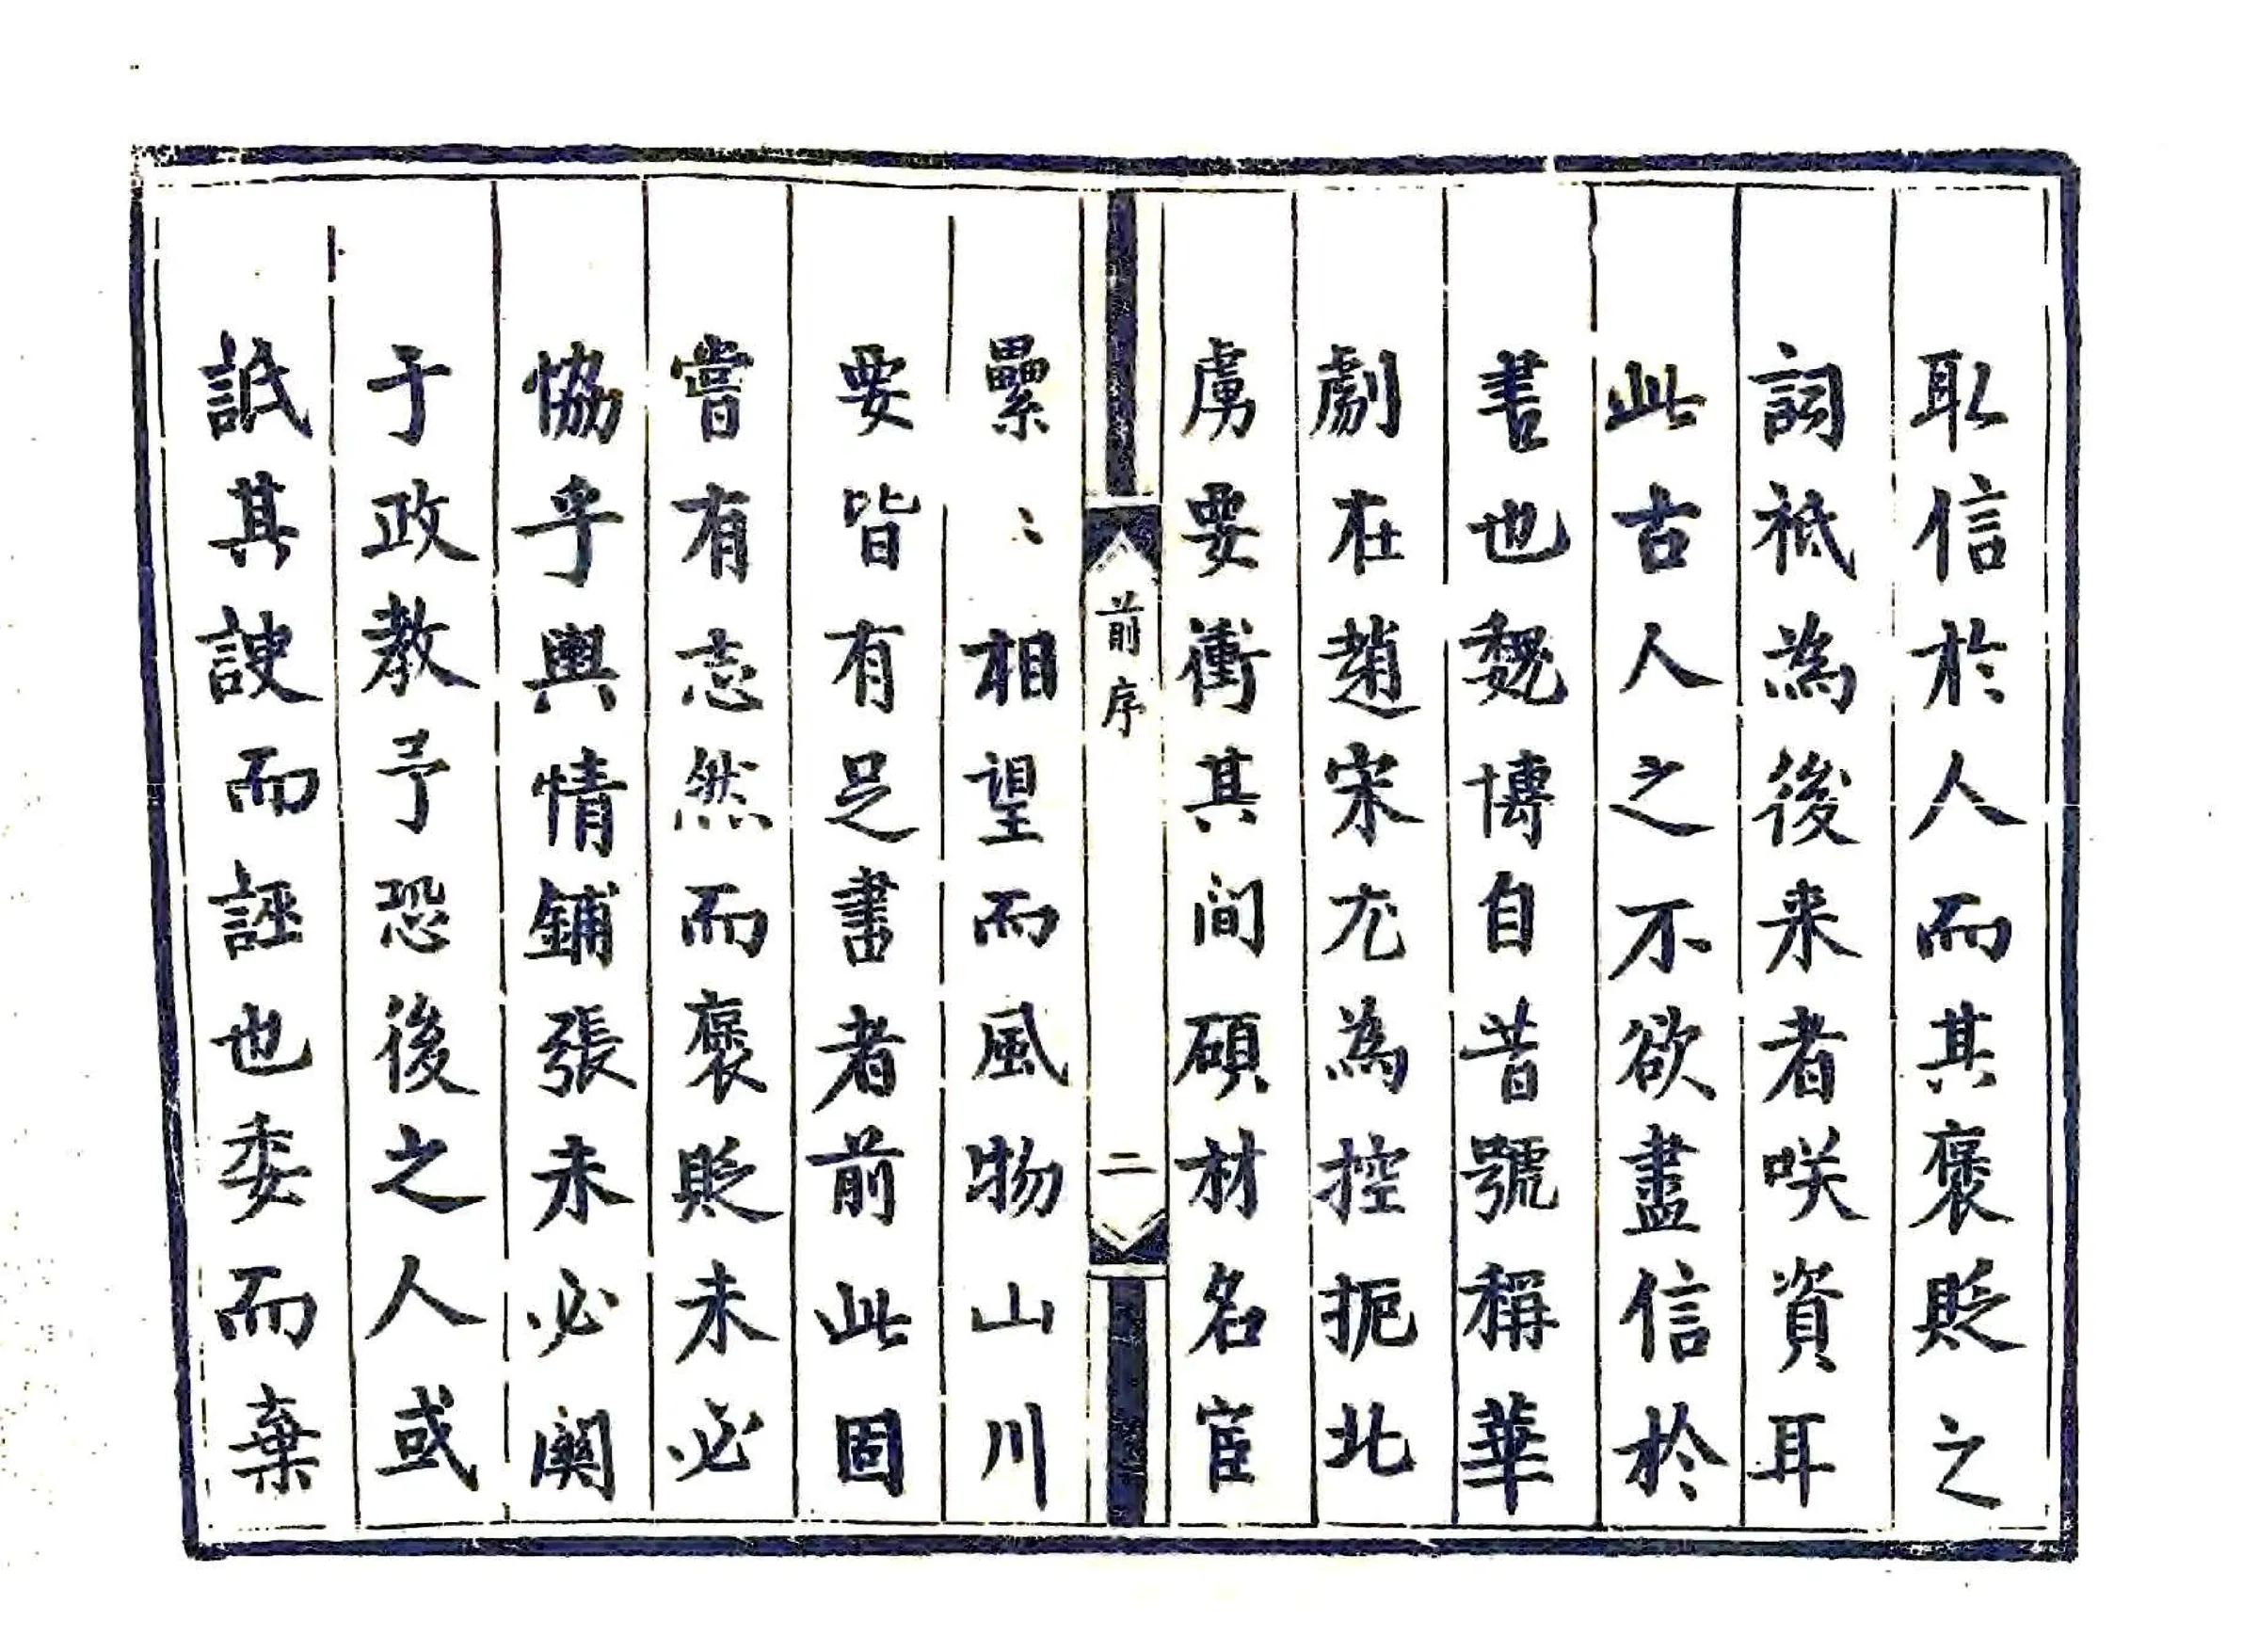 取信於人而其褒貶之
詞祗為後来者咲資耳
此古人之不欲盡信於
書也魏博自昔號稱華
劇在趙宋尤為控扼北
虜要衝其间碩材名宦
前序
二
纍〻相望而風物山川
要皆有足書者前此固
嘗有志然而褒貶未必
恊乎輿情鋪張未必関
于政教予恐後之人或
詆其謏而誣也委而棄